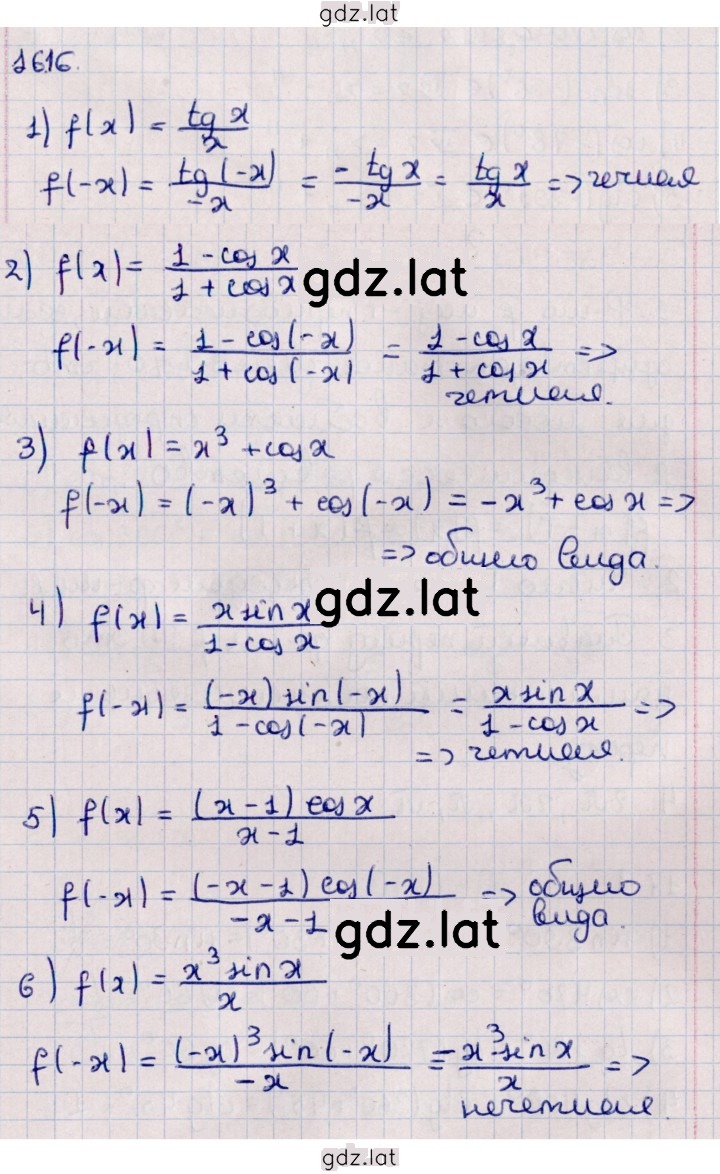 gdz.lat
1616.
1) f(x) = tg x / x
f(-x) = tg(-x) / -x = - tg x / -x = tg x / x => четная
2) f(x) = 1 - cos x / 1 + cos x gdz.lat
f(-x) = 1 - cos(-x) / 1 + cos(-x) = 1 - cos x / 1 + cos x =>
четная.
3) f(x) = x³ + cos x
f(-x) = (-x)³ + cos(-x) = -x³ + cos x =>
=> общего вида.
4) f(x) = x sin x / 1 - cos x gdz.lat
f(-x) = (-x) sin(-x) / 1 - cos(-x) = x sin x / 1 - cos x =>
=> четная.
5) f(x) = (x - 1) cos x / x - 1
f(-x) = (-x - 1) cos(-x) / -x - 1 => общего
вида.
gdz.lat
6) f(x) = x³ sin x / x
f(-x) = (-x)³ sin(-x) / -x = -x³ sin x / x =>
нечетная.
gdz.lat